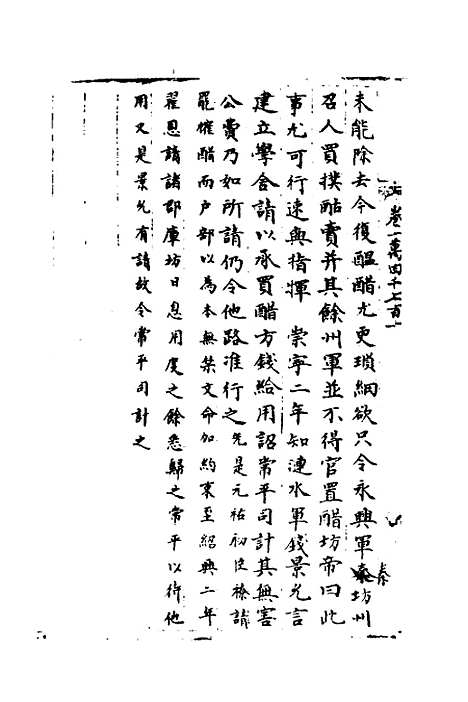 卷一萬四千七百一
未能除去今復醖醋尤更瑣細欲只令永興軍秦坊州
召人買撲酤賣并其餘州軍並不得官置醋坊帝曰此
事尤可行速與指揮 崇寧二年知漣水軍錢景允言
建立學舍請以承買醋方錢給用詔常平司計其無害
公費乃如所請仍令他路准行之先是元祐初臣榛請
罷榷醋而戶部以為本無禁文命加約束至紹興二年
翟思請諸郡庫坊日息用度之餘悉歸之常平以待他
用又是景允有請故令常平司計之